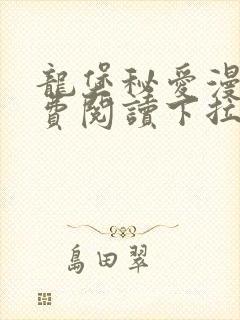 龍堡秘愛漫
費閱讀下拉
島田翠